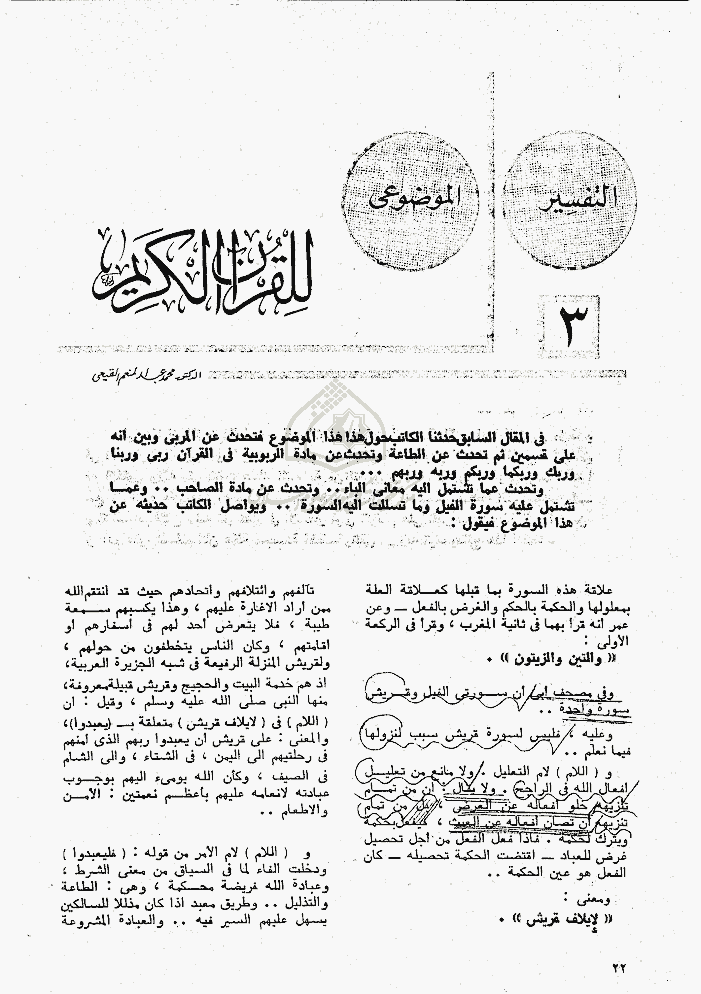 التفسير
الموضوعى
للقرآن الكريم
٣
الدكتور محمد عبد المنعم القيعى
فى المقال السابق حدثنا الكاتب حول هذا هذا الموضوع فتحدث عن المربى وبين أنه
على قسمين ثم تحدث عن الطاعة وتحدث عن مادة الربوبية فى القرآن ربى وربنا
وربك وربكما وربكم وربه وربهم ...
وتحدث عما تشتمل اليه معانى الباء .. وتحدث عن مادة الصاحب .. وعما
تشتمل عليه سورة الفيل وما تسللت اليه السورة .. ويواصل الكاتب حديثه عن
هذا الموضوع فيقول :
علاقة هذه السورة بما قبلها كعلاقة العلة
بمعلولها والحكمة بالحكم والغرض بالفعل — وعن
عمر أنه قرأ بهما فى ثانية المغرب ، وقرأ فى الركعة
الأولى :
« والتين والزيتون » .
وفى مصحف أبى أن سورتى الفيل وقريش
سورة واحدة ..
وعليه ، فليس لسورة قريش سبب لنزولها
فيما نعلم ..
و ( اللام ) لام التعليل . ولا مانع من تعليل
أفعال الله فى الراجح . ولا يقال : ان من تمام
تنزيهه خلو أفعاله عن الغرض ، بل من تمام
تنزيهه أن تصان أفعاله عن العبث ، فيفعل بحكمة
ويترك لحكمة . فاذا فعل الفعل من أجل تحصيل
غرض للعباد — اقتضت الحكمة تحصيله — كان
الفعل هو عين الحكمة ..
ومعنى :
« لإيلاف قريش » .
تآلفهم وائتلافهم واتحادهم حيث قد انتقم الله
ممن أراد الاغارة عليهم ، وهذا يكسبهم سمعة
طيبة ، فلا يتعرض أحد لهم فى أسفارهم أو
اقامتهم ، وكان الناس يتخطفون من حولهم ،
ولقريش المنزلة الرفيعة فى شبه الجزيرة العربية،
اذ هم خدمة البيت والحجيج وقريش قبيلة معروفة،
منها النبى صلى الله عليه وسلم ، وقيل : ان
(اللام ) فى ( لايلاف قريش ) متعلقة بـ (يعبدوا)،
والمعنى : على قريش أن يعبدوا ربهم الذى أمنهم
فى رحلتيهم الى اليمن ، فى الشتاء ، والى الشام
فى الصيف ، وكأن الله يومىء اليهم بوجوب
عبادته لانعامه عليهم بأعظم نعمتين : الأمن
والاطعام ..
و ( اللام ) لام الأمر من قوله : ( فليعبدوا )
ودخلت الفاء لما فى السياق من معنى الشرط ،
وعبادة الله فريضة محكمة ، وهى : الطاعة
والتذليل .. وطريق معبد اذا كان مذللا للسالكين
يسهل عليهم السير فيه .. والعبادة المشروعة
٢٢